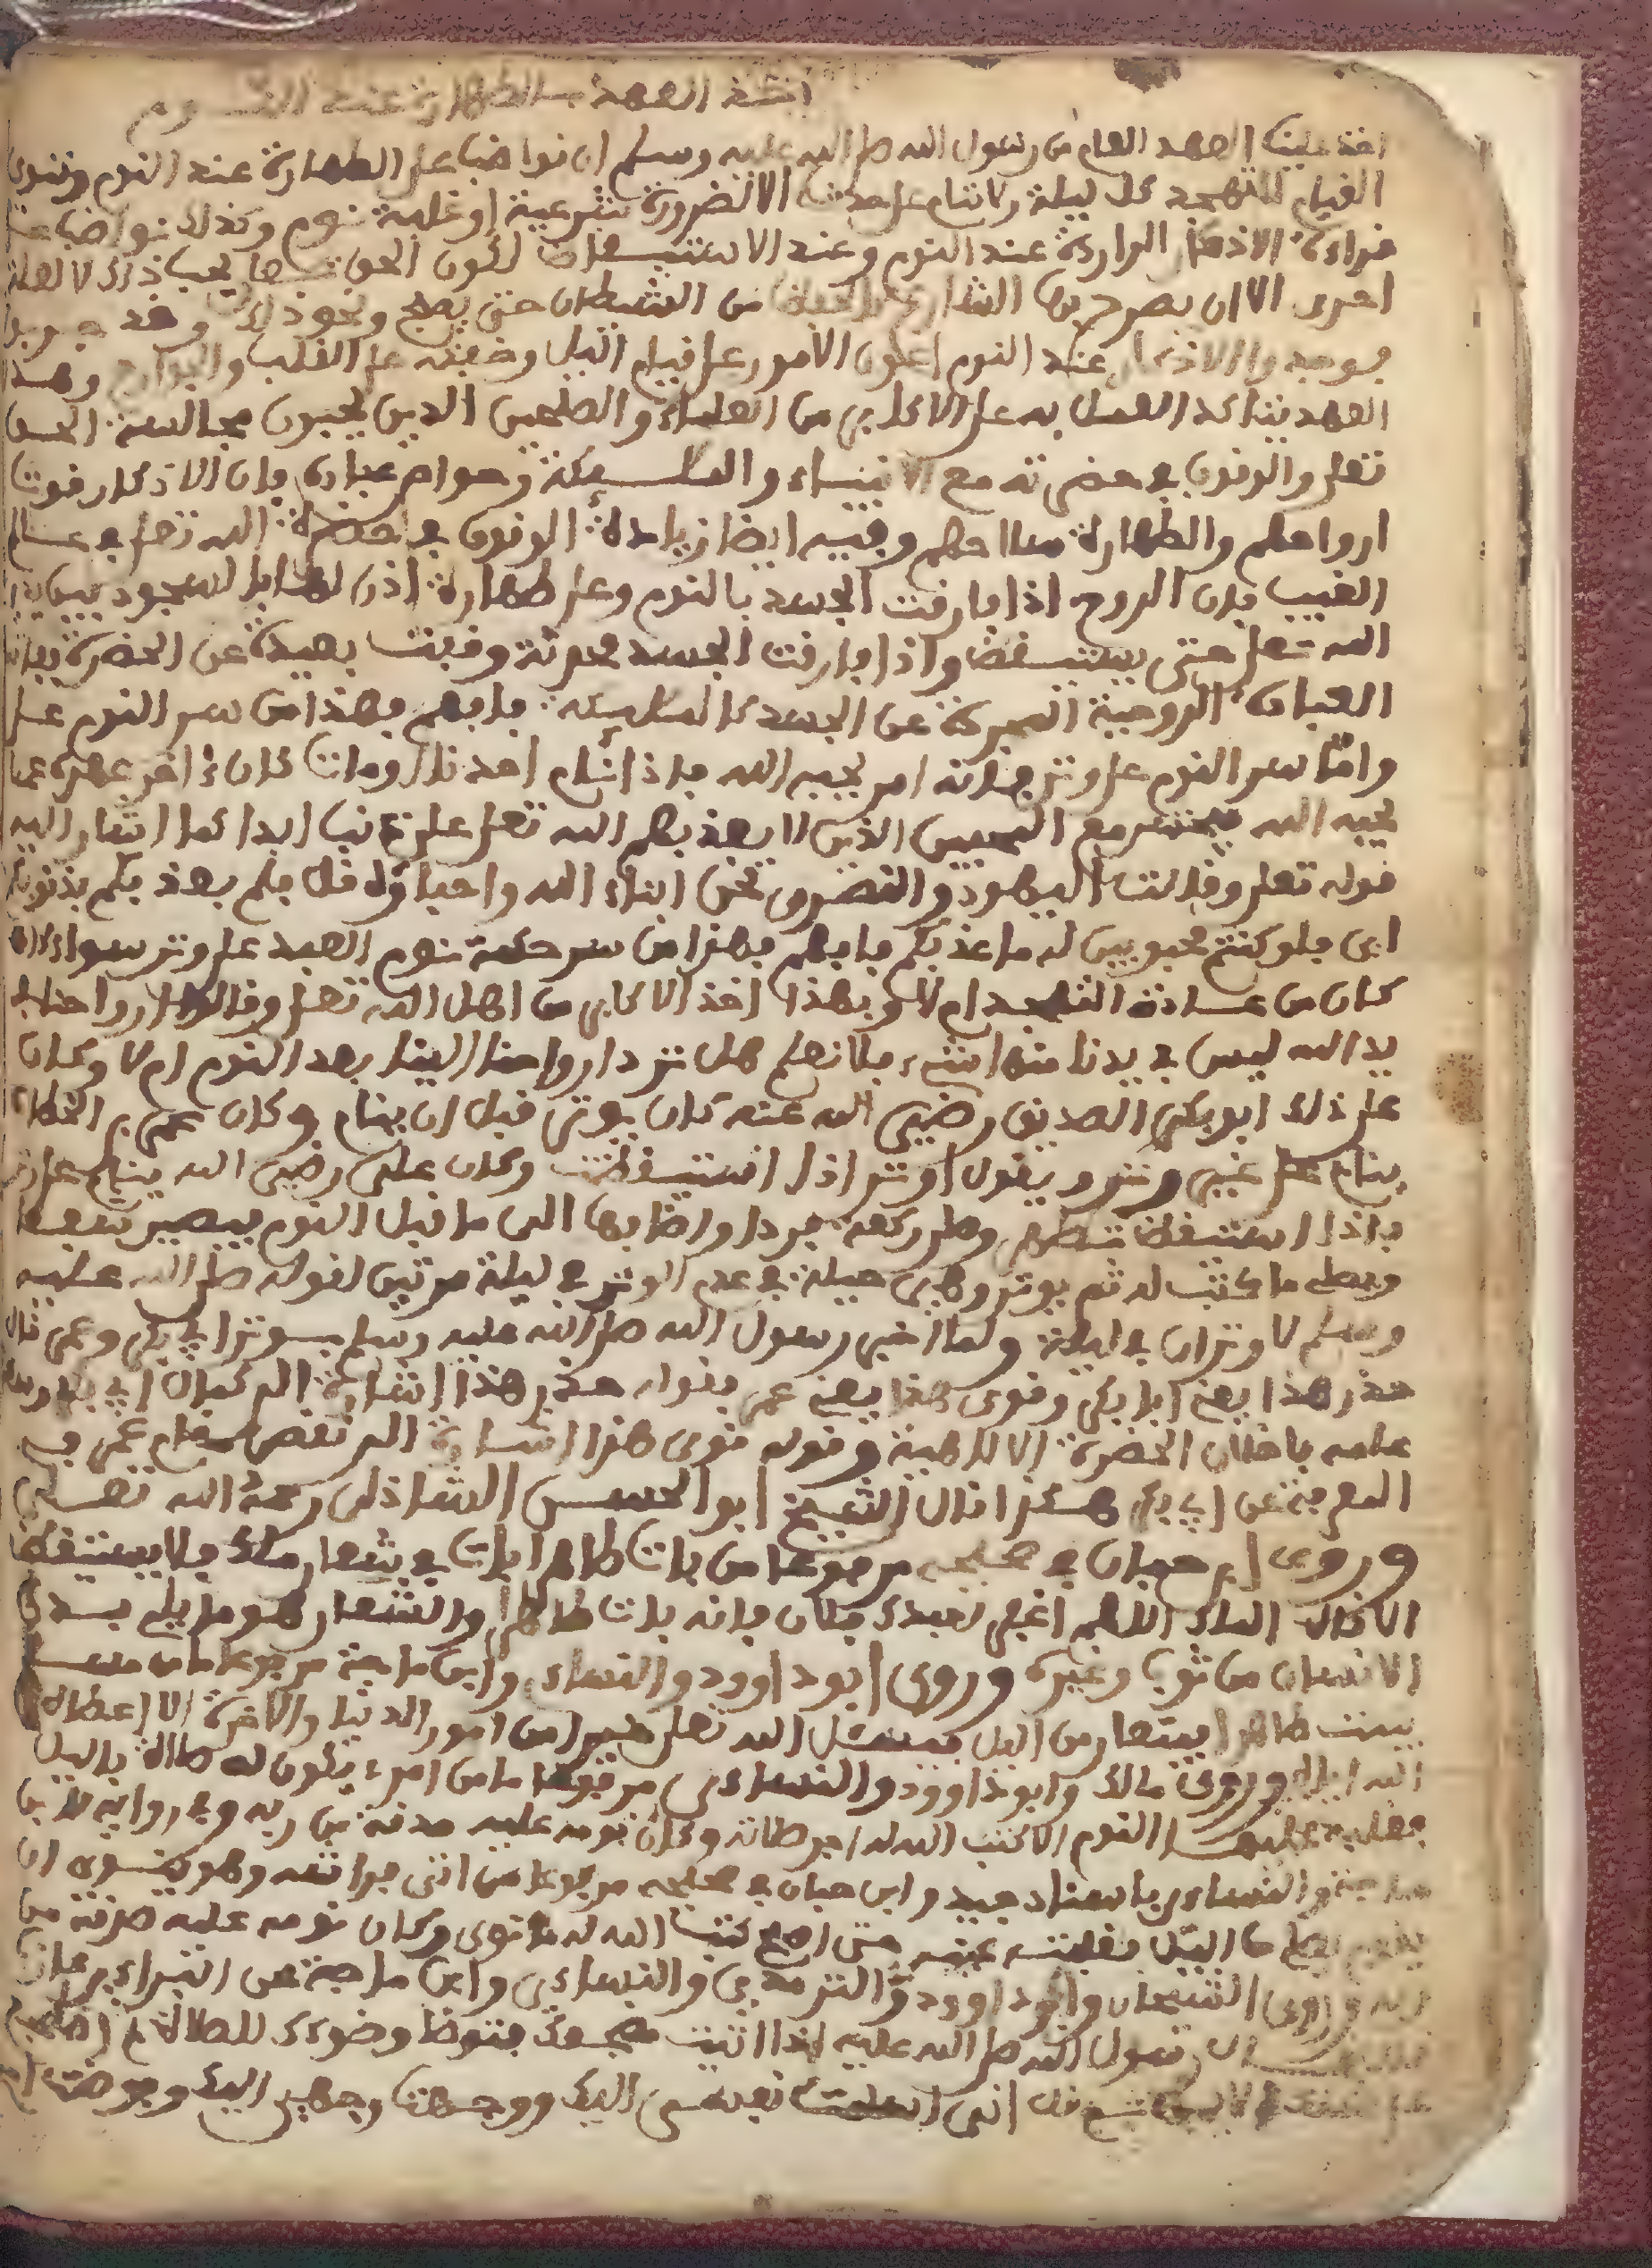 انتهى العهد بالطهارة عند النوم
اخذ علينا العهد العام من رسول الله صلى الله عليه وسلم ان نواضب على الطهارة عند النوم وننوي
القيام للتهجد كل ليلة ولا ننام على حدث الا لضرورة شرعية او غلبة نوم وكذلك نواضب على
قراءة الاذكار الواردة عند النوم وعند الاستيقاظ لكون الحق تعالى يحب ذلك لا لعلة
اخرى الا ان يصرح بها الشارع كالحفظ من الشيطان حتى يصبح ونحو ذلك وقد جربوا
فوجدوا الاذكار عند النوم اعون الامور على قيام الليل وخفته على القلب والجوارح وهذا
العهد يتاكد العمل به على الاكابر من العلماء والصلحين الذين يحبون مجالسة الحق
تعلى والوقوف في حضرته مع الانبياء والملـــيكة وخواص عباده فان الاذكار قوت
ارواحهم والطهارة سلاحهم وفيه ايضا زيادة الوقوف في حضرة الله تعلى في عـــالم
الغيب فان الروح اذا فارقت الجسد بالنوم وعلى طهارة اذن لها بالسجود بين يدي
الله تعلى حتى يستيقض واذا فارقت الجسد محدثة وقعت بعيدة عن الحضرة فيفوتها
العبادة الروحية المجردة عن الجسد كالمليكة فافهم فهذا من سر النوم على
واما سر النوم على وتر فلانه امر يحبه الله فاذا نام احدنا ومات كان اخر عهده عملا
يحبه الله فيحشر مع المحبين الذين لا يعذبهم الله تعلى على ذنب ابدا كما اشار اليه
قوله تعلى وقالت اليهود والنصرى نحن ابناء الله واحباؤه قل فلم يعذبكم بذنوبكم
اي فلو كنتم محبوبين له ما عذبكم فافهم فهذا من سر حكمة نوم العبد على وتر سواء
كان من عـــادته التهجد ام لا وبهذا اخذ الاكابر من اهل الله تعلى وقالوا ارواحنا
بيد الله ليس في يدنا منها شيء فلا نعلم هل ترد ارواحنا الينا بعد النوم ام لا وكان
على ذلك ابو بكر الصديق رضي الله عنه كان يوتر قبل ان ينام وكان عمر بن الخطاب
ينام على غير وتر ويقول اوتر اذا استيقظت وكان علي رضي الله ينام على وتر
فاذا استيقظ تطهر وصلى ركعة فردا واضافها الى ما قبل النوم فيصير شفعا
ويصلي ما كتب له ثم يوتر وهي حيلة في عدم الوتر في ليلة مرتين لقوله صلى الله عليه
وسلم لا وتران في ليلة ولما اخبر رسول الله صلى الله عليه وسلم بـــوتر ابي بكر وعمر قال
حذر هذا يعني ابا بكر وقوي هذا يعني عمر فقوله حذر هذا اشارة الى كمال ابي بكر وسعة
علمه باخلاق الحضرة الالاهية وقوله قوى هذا اشارة الى نقص مقام عمر في
المعرفة عن ابي بكر هكذا قال الشيخ ابو الحســـن الشاذلي رحمه الله تعـــلى
وروى ابن حبان في صحيحه مرفوعا من بات طاهرا بات في شعار ملك فلا يستيقظ
الا قال الملك اللهم اغفر لعبدك فلان فانه بات طاهرا والشعار هو ما يلي بـــدن
الانسان من ثوب وغيره وروى ابو داوود والنساءي وابن ماجة مرفوعا ما من مسلم
يبيت طاهرا فيتعار من اليل فيسئل الله تعلى خيرا من امور الدنيا والاخرة الا اعطاه
الله اياه وروى مالك وابو داوود والنساءي مرفوعا ما من امرء يكون له صلاة باليل
فغلبه عليها النوم الا كتب الله له اجر صلاته وكان نومه عليه صدقة من ربه وفي رواية لابن
ماجة والنساءي باسناد جيد وابن حبان في صحيحه مرفوعا من اتى فراشه وهو ينوي ان
يقوم يصلي من اليل فغلبته عينه حتى اصبح كتب الله له ما نوى وكان نومه عليه صدقة من
ربه وروى الشيخان وابو داوود والترمذي والنساءي وابن ماجة عن البراء بن عازب
قال قال رسول الله صلى الله عليه اذا اتيت مضجعك فتوضا وضوءك للصلاة ثم اضطجع
على شقك الايمن ثم قل اني اسلمت نفسي اليك ووجهت وجهي اليك وفوضت امري